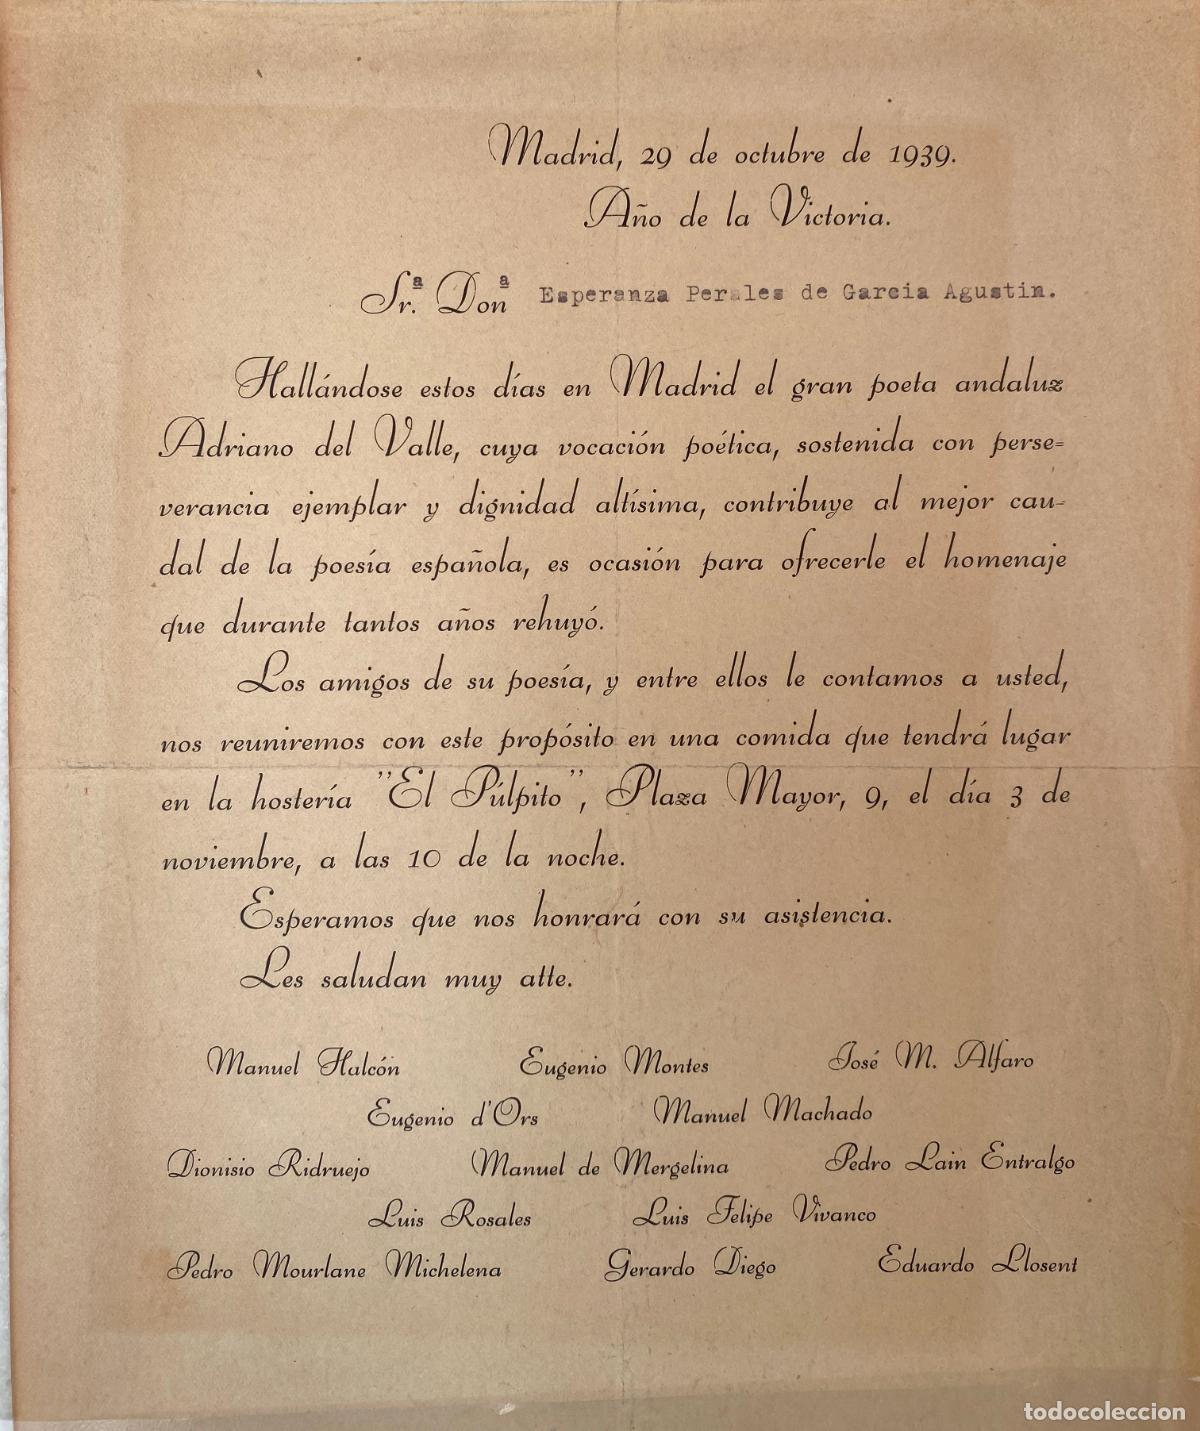 Madrid, 29 de octubre de 1939.
Año de la Victoria.
Sr.ª Donª Esperanza Perales de Garcia Agustin.
Hallándose estos días en Madrid el gran poeta andaluz
Adriano del Valle, cuya vocación poética, sostenida con perse=
verancia ejemplar y dignidad altísima, contribuye al mejor cau-
dal de la poesía española, es ocasión para ofrecerle el homenaje
que durante tantos años rehuyó.
Los amigos de su poesía, y entre ellos le contamos a usted,
nos reuniremos con este propósito en una comida que tendrá lugar
en la hostería "El Púlpito", Plaza Mayor, 9, el día 3 de
noviembre, a las 10 de la noche.
Esperamos que nos honrará con su asistencia.
Les saludan muy atte.
Manuel Halcón Eugenio Montes José M. Alfaro
Eugenio d'Ors Manuel Machado
Dionisio Ridruejo Manuel de Mergelina Pedro Lain Entralgo
Luis Rosales Luis Felipe Vivanco
Pedro Mourlane Michelena Gerardo Diego Eduardo Llosent
todocoleccion